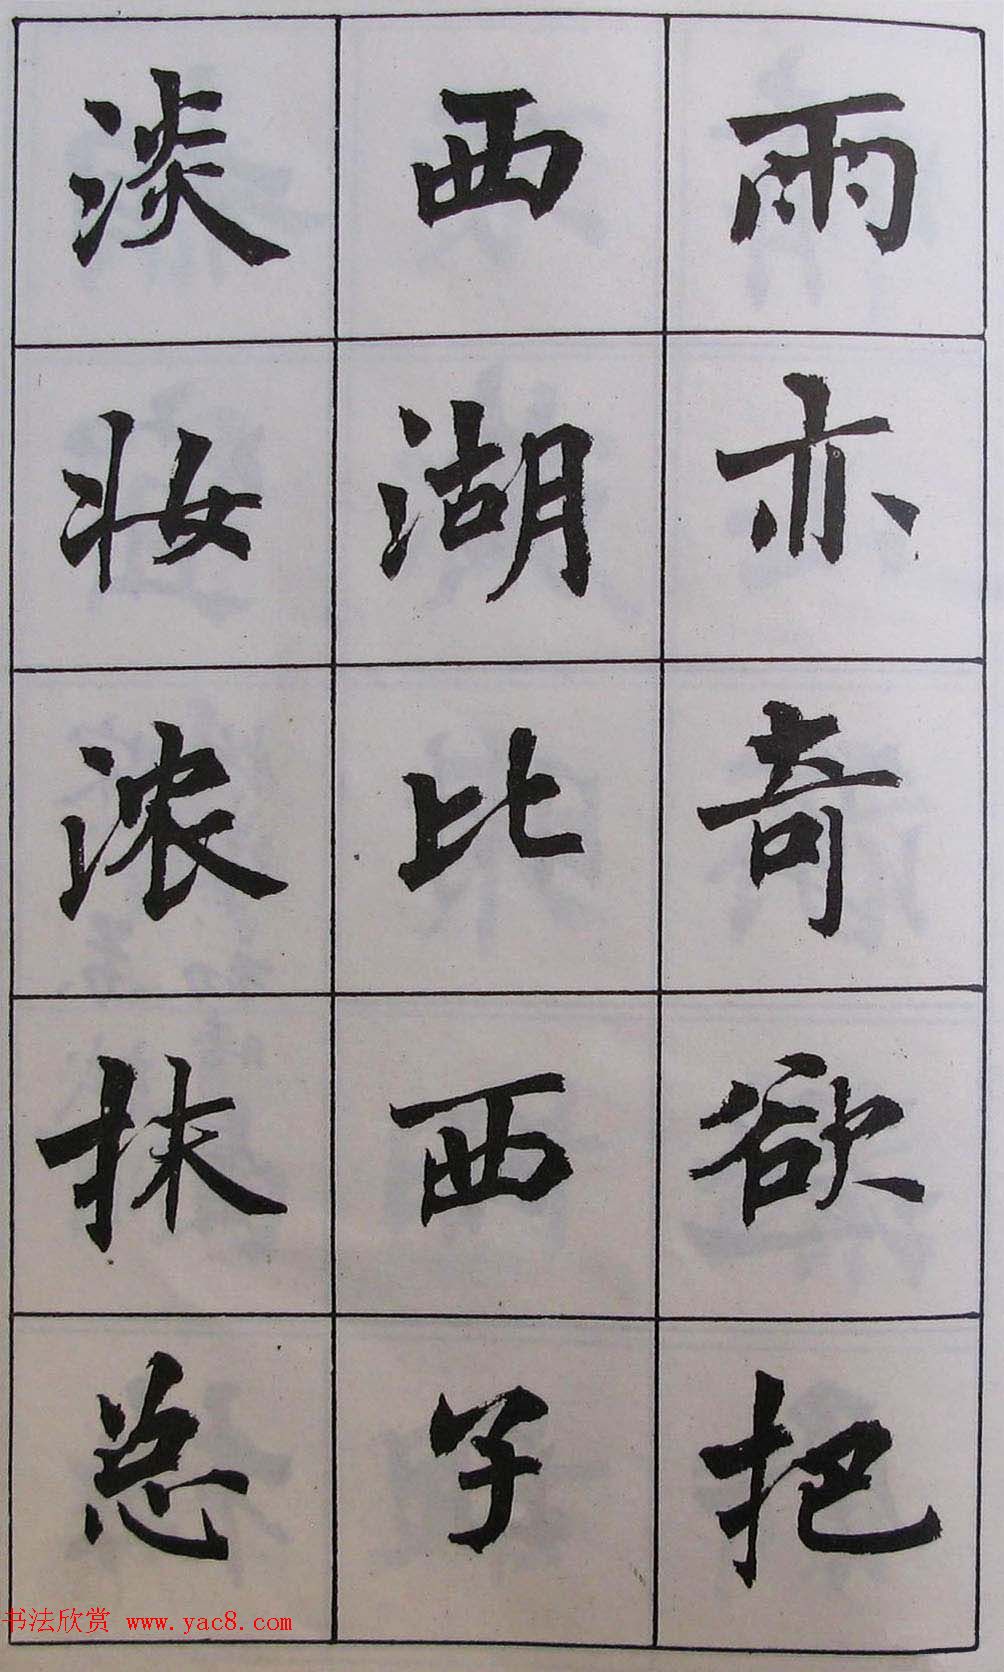 雨亦奇欲把
西湖比西子
淡妆浓抹总
书法欣赏 www.yac8.com